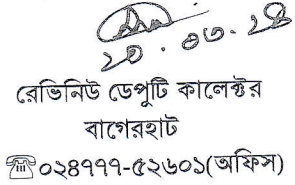 ২০.০৩.২৪
রেভিনিউ ডেপুটি কালেক্টর
বাগেরহাট
☎০২৪৭৭৭-৫২৬০১(অফিস)